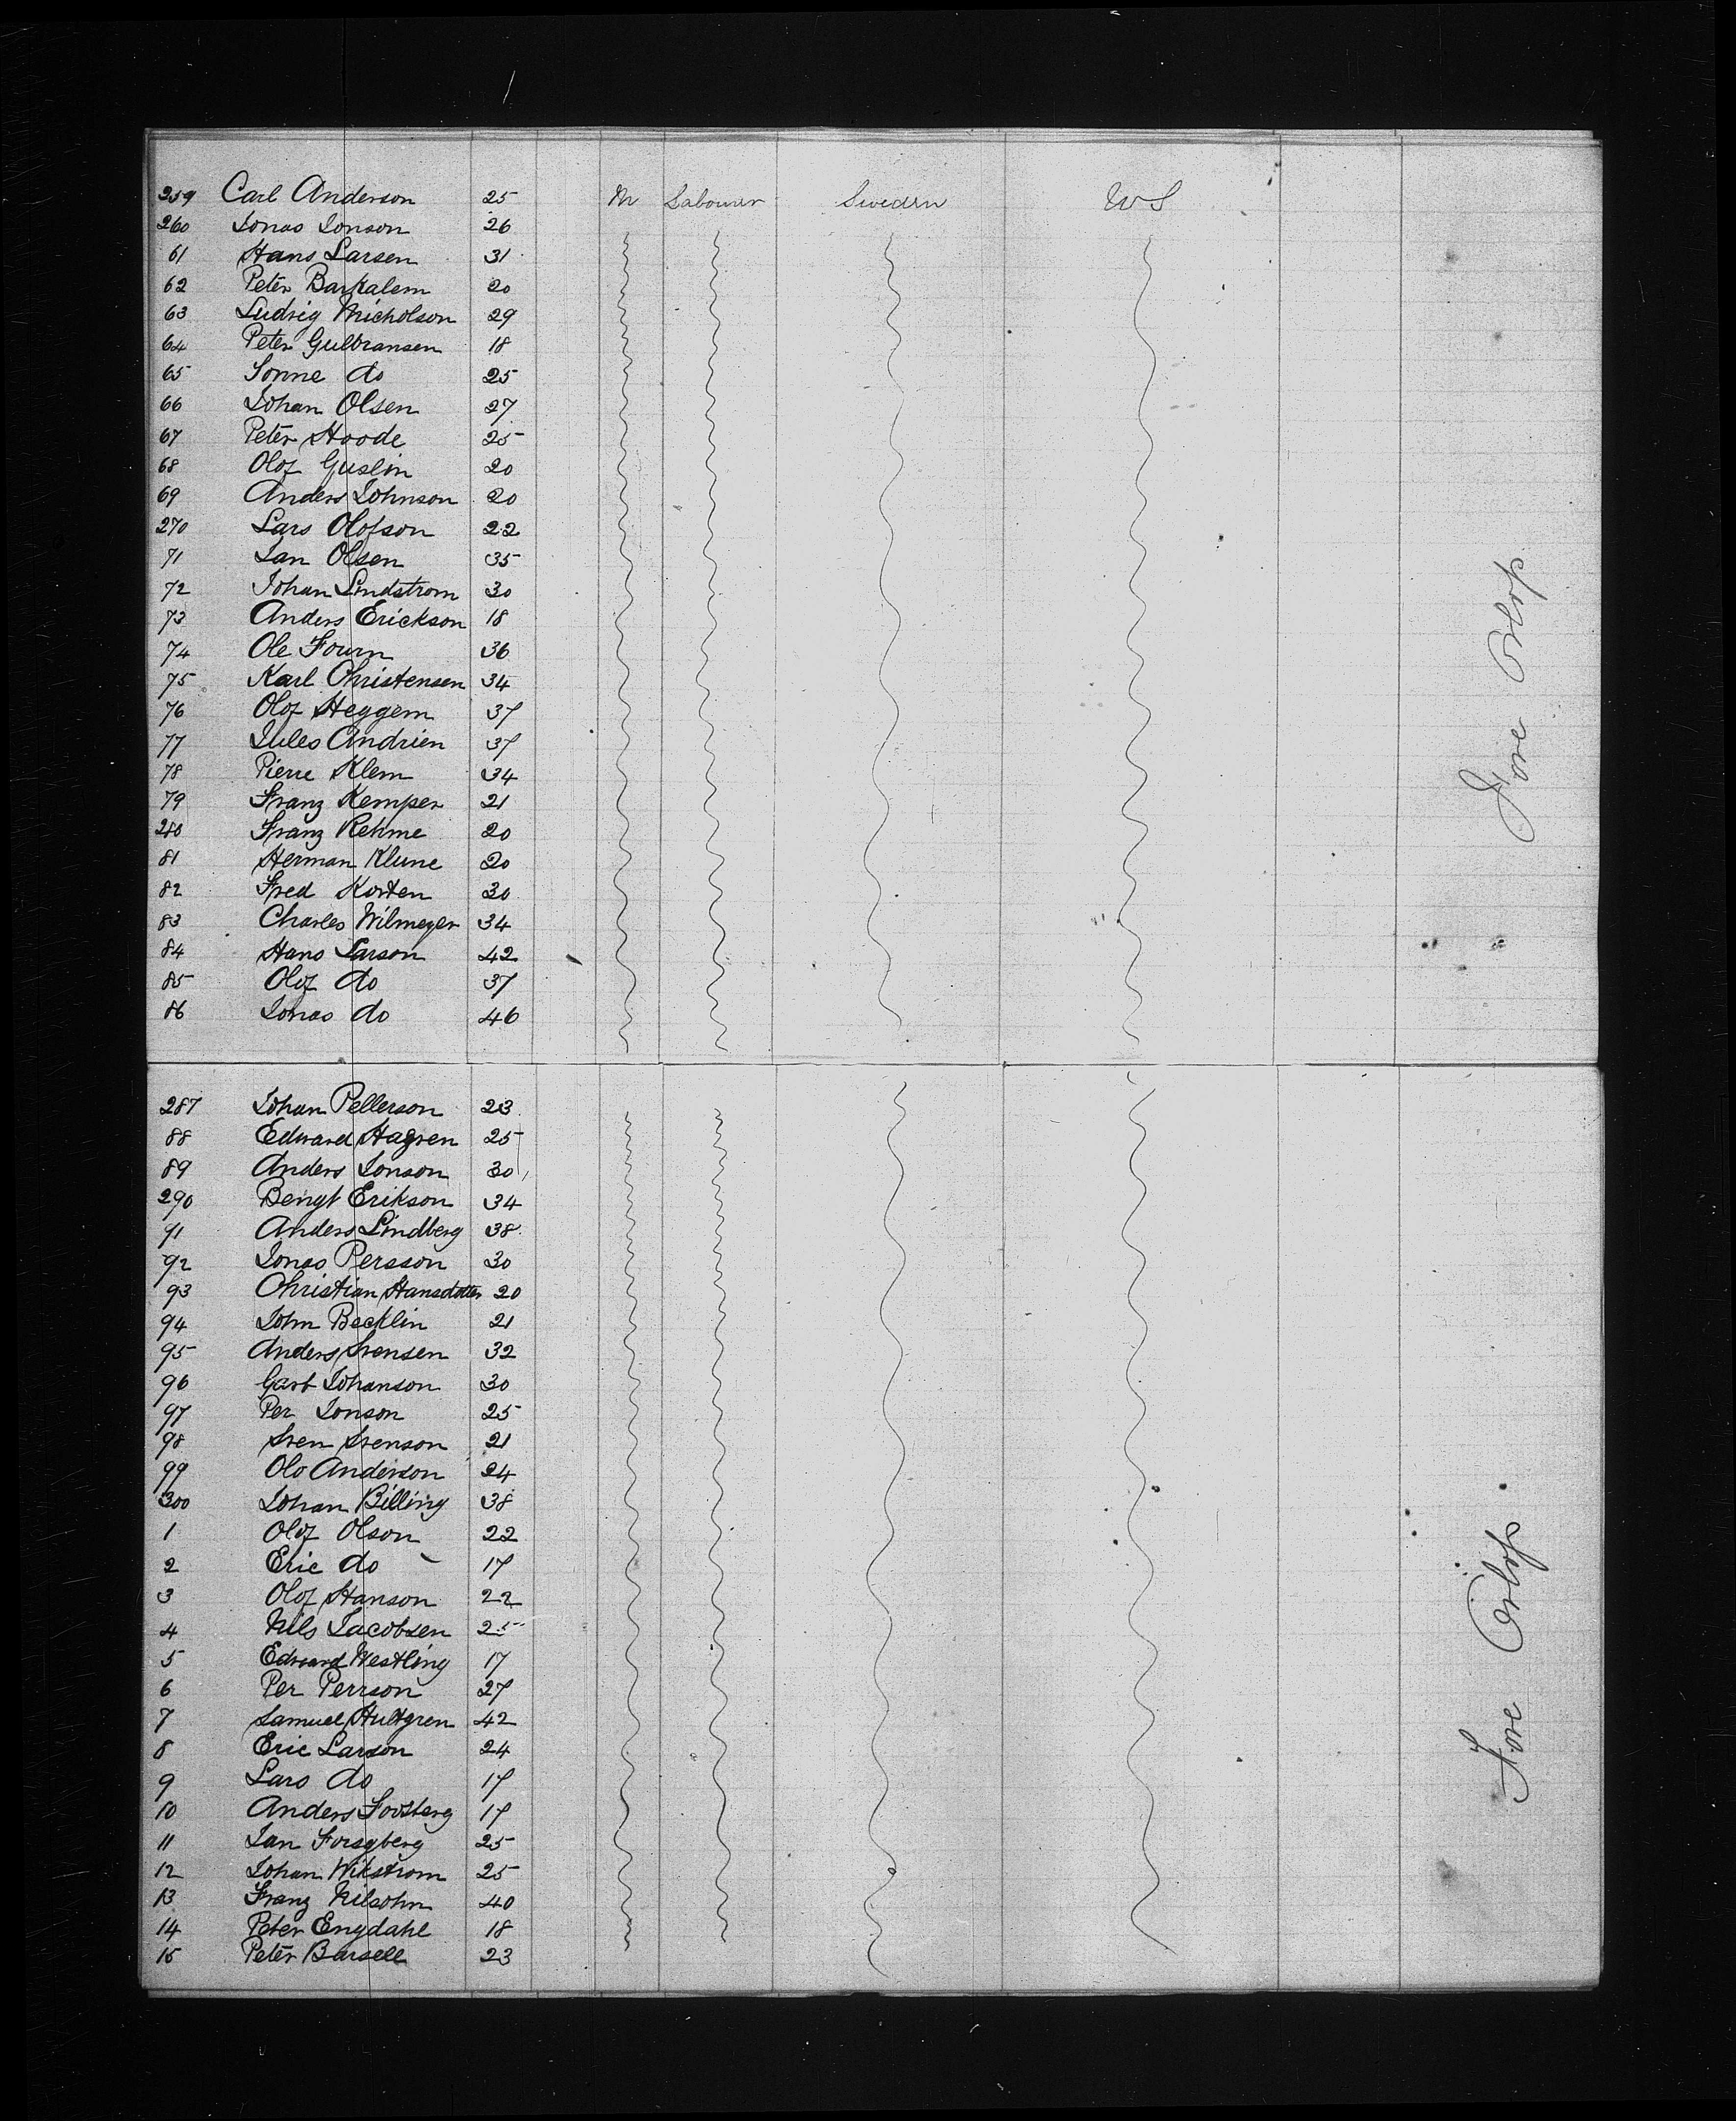 259 Carl Anderson 25 M Labourer Sweden US
260 Jonas Jonson 26
61 Hans Larsen 31
62 Peter Barkalem 20
63 Ludvig Micholson 29
64 Peter Gulbransen 18
65 Sonne do 25
66 Johan Olsen 27
67 Peter Hoode 25
68 Olof Guslin 20
69 Anders Johnson 20
270 Lars Olofson 22
71 Jan Olsen 35
72 Johan Lindstrom 30
73 Anders Erickson 18
74 Ole Fourn 36
75 Karl Christensen 34
76 Olof Heggem 37
77 Jules Andrien 37
78 Pierre Klem 34
79 Franz Kemper 21
280 Franz Rehme 20
81 Herman Klune 20
82 Fred Korten 30
83 Charles Wilmeyer 34
84 Hans Larson 42
85 Olof do 37
86 Jonas do 46
Fore Orlop
287 Johan Pellerson 23
88 Edward Hagren 25
89 Anders Jonson 30
290 Bengt Erikson 34
91 Anders Lindberg 38
92 Jonas Persson 30
93 Christian Hansdotter 20
94 John Becklin 21
95 Anders Svensen 32
96 Johanson 30
97 Per Jonson 25
98 Sven Svenson 21
99 Olo Anderson 24
300 Johan Billing 38
1 Olof Olson 22
2 Eric do 17
3 Olof Hanson 22
4 Nils Jacobsen 25
5 Edward Westling 17
6 Per Perrson 27
7 Samuel Hultgren 42
8 Eric Larson 24
9 Lars do 17
10 Anders Forsberg 17
11 Jan Forsgberg 25
12 Johan Wikstrom 25
13 Franz Nilsohn 40
14 Peter Engdahl 18
15 Peter Barsell 23
Fore Orlop